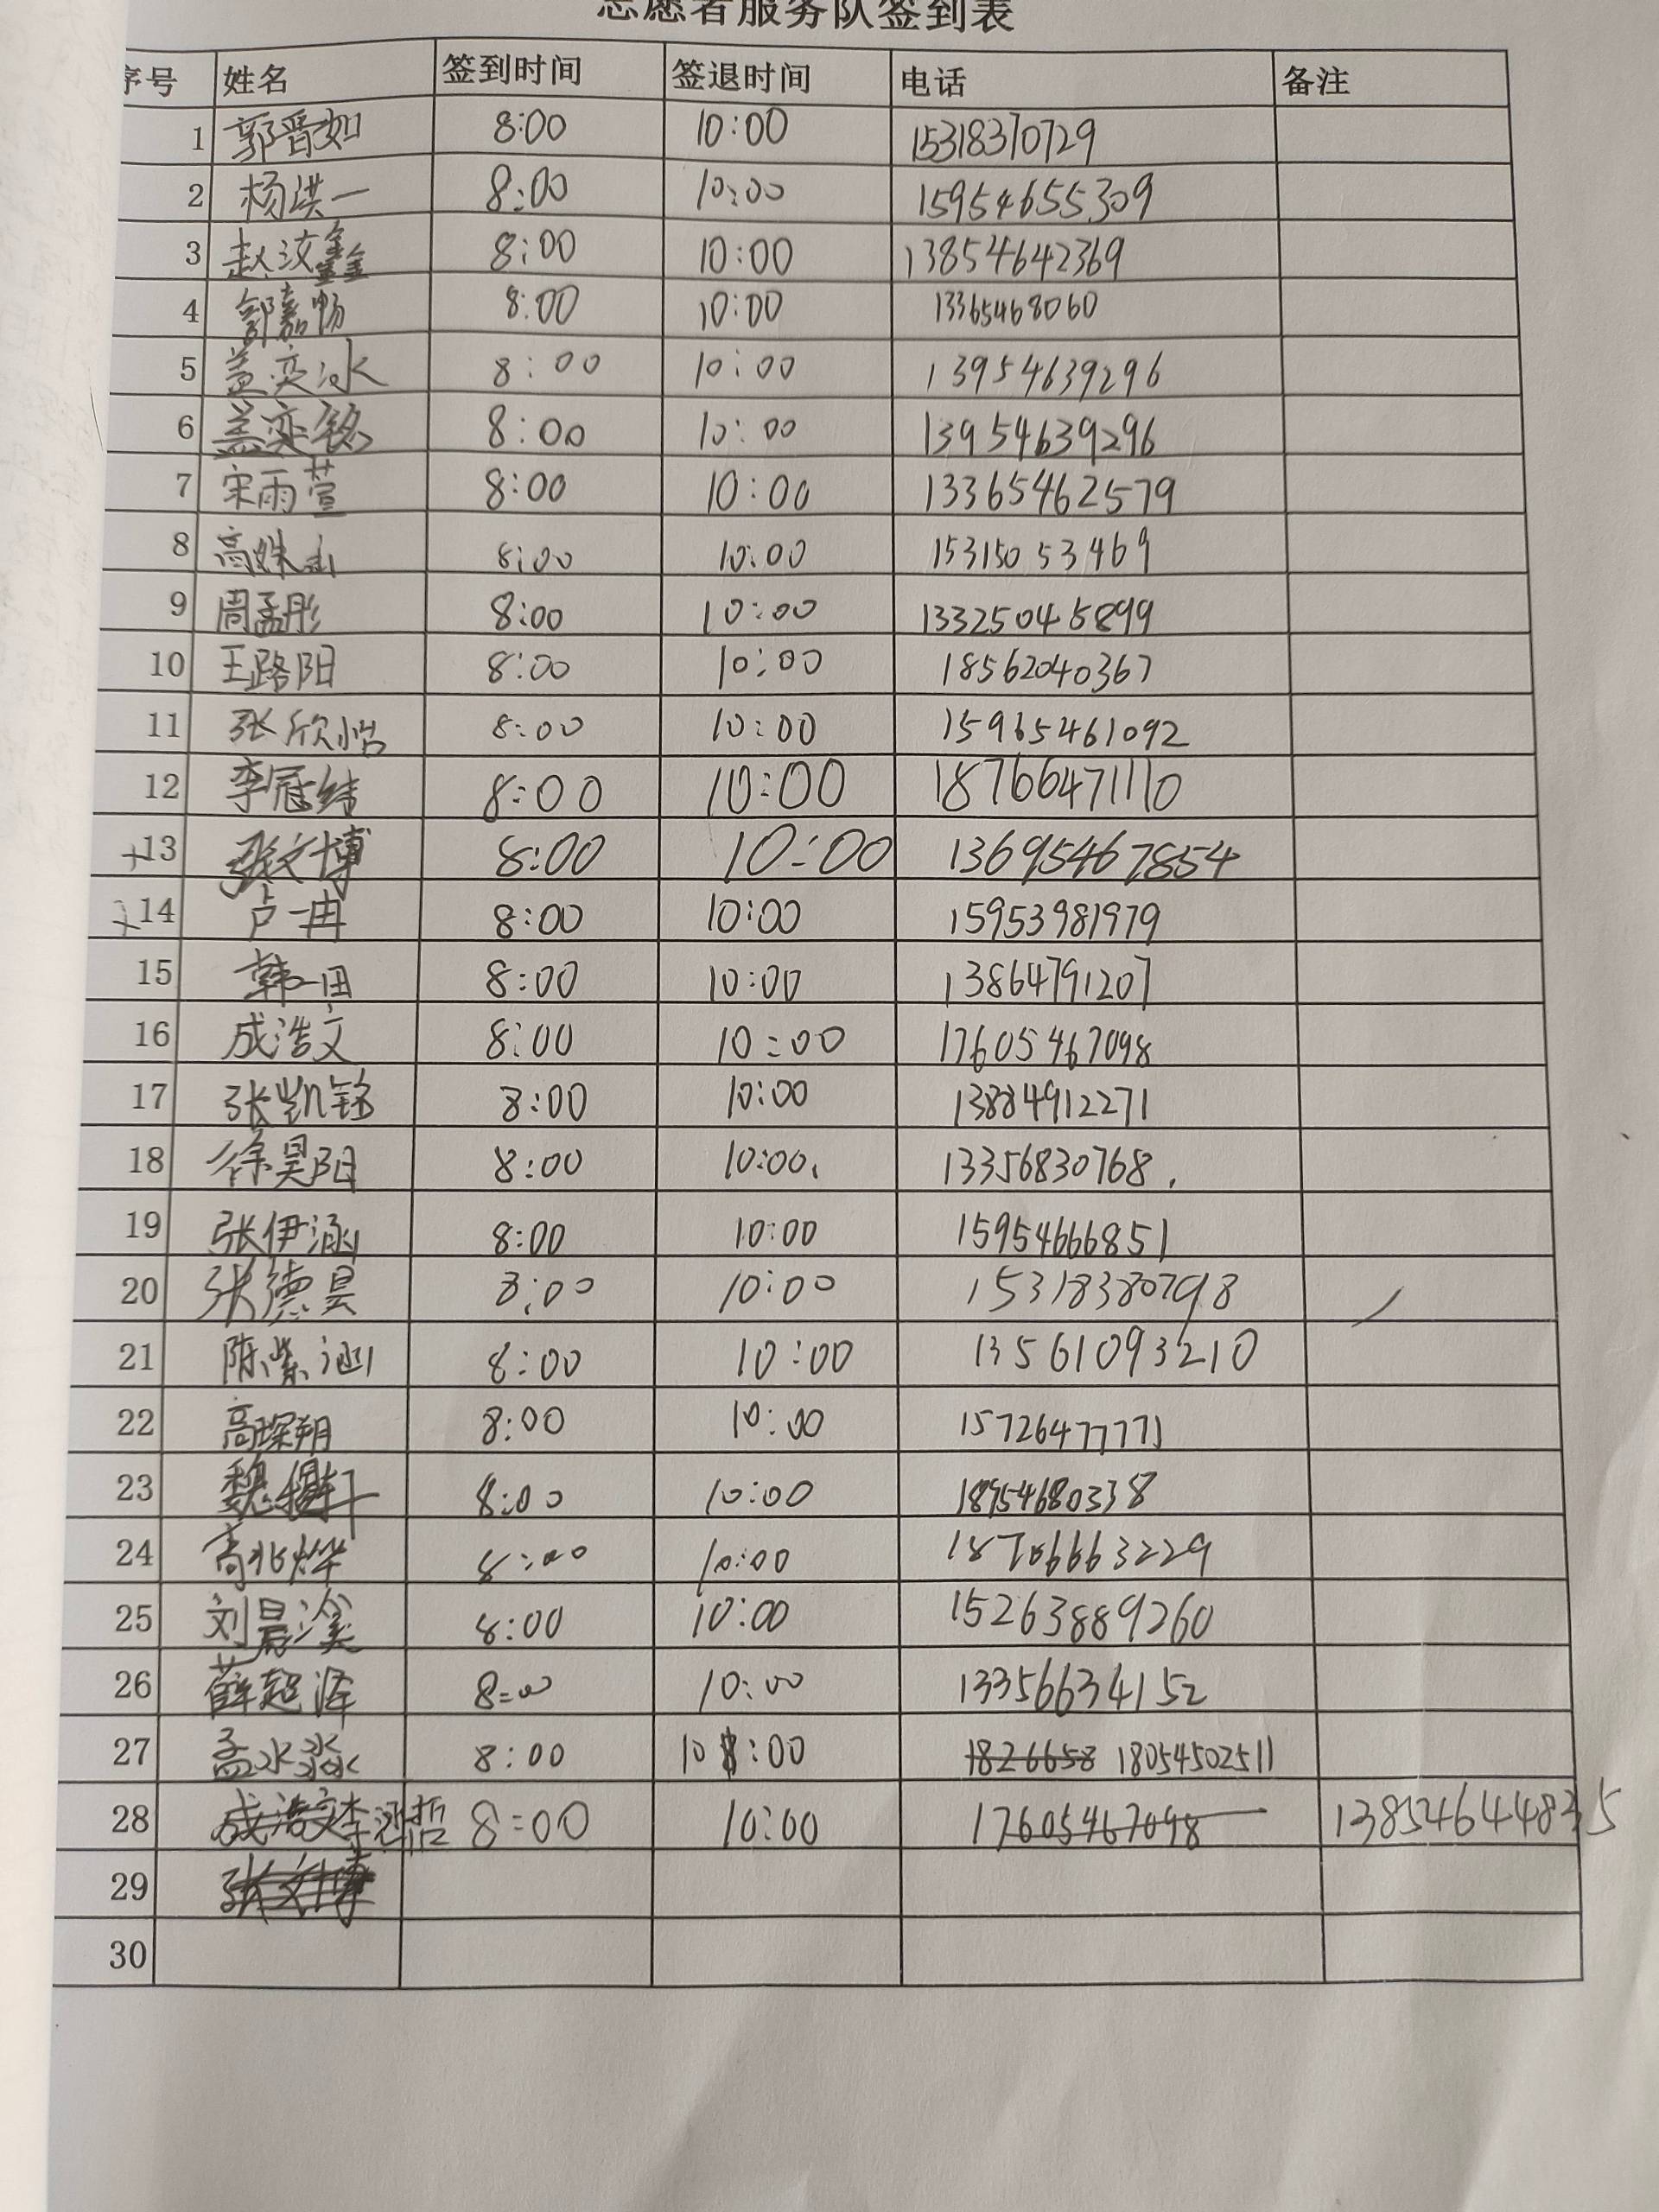 志愿者服务队签到表
序号 姓名 签到时间 签退时间 电话 备注
1 郭晋如 8:00 10:00 15318370729
2 杨淇一 8:00 10:00 15954655309
3 赵汶鑫 8:00 10:00 13854642369
4 郭嘉畅 8:00 10:00 13365468060
5 盖奕冰 8:00 10:00 13954639296
6 盖奕铭 8:00 10:00 13954639296
7 宋雨萱 8:00 10:00 13365462579
8 高姝 8:00 10:00 15315053469
9 周孟彤 8:00 10:00 13325045899
10 王路阳 8:00 10:00 18562040367
11 张欣怡 8:00 10:00 15965461092
12 李冠纬 8:00 10:00 18766471110
13 张文博 8:00 10:00 13695467854
14 卢一冉 8:00 10:00 15953981979
15 韩一田 8:00 10:00 13864791207
16 成浩文 8:00 10:00 17605467098
17 张凯铭 8:00 10:00 13884912271
18 徐昊阳 8:00 10:00. 13356830768.
19 张伊涵 8:00 10:00 15954666851
20 张德昊 8:00 10:00 15318380798
21 陈紫涵 8:00 10:00 13561093210
22 高琛朔 8:00 10:00 15726477771
23 魏 轩 8:00 10:00 18954680338
24 高兆烨 8:00 10:00 18706663229
25 刘晨溪 8:00 10:00 15263889260
26 薛超泽 8:00 10:00 13356634152
27 孟水淼 8:00 10:00 1826658 18054502511
28 成浩文 李涵哲 8:00 10:00 17605467098 13854644835
29 张文博
30